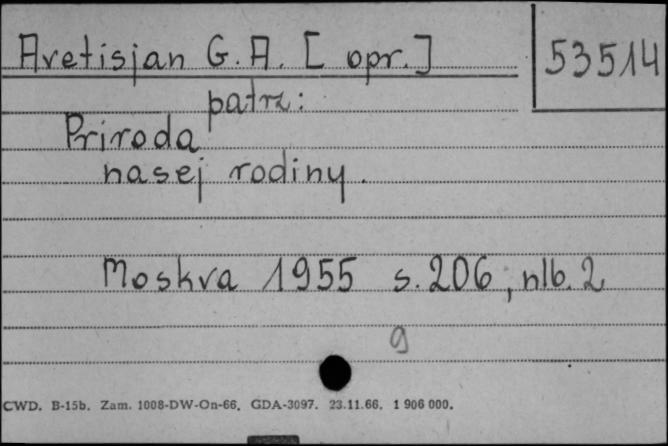 Avetisjan G. A. [ opr. ]
53514
patrz:
Priroda
nasej rodiny.
Moskva 1955 s. 206; nlb. 2
9
CWD. B-15b. Zam. 1008-DW-On-66. GDA-3097. 23.11.66. 1 906 000.